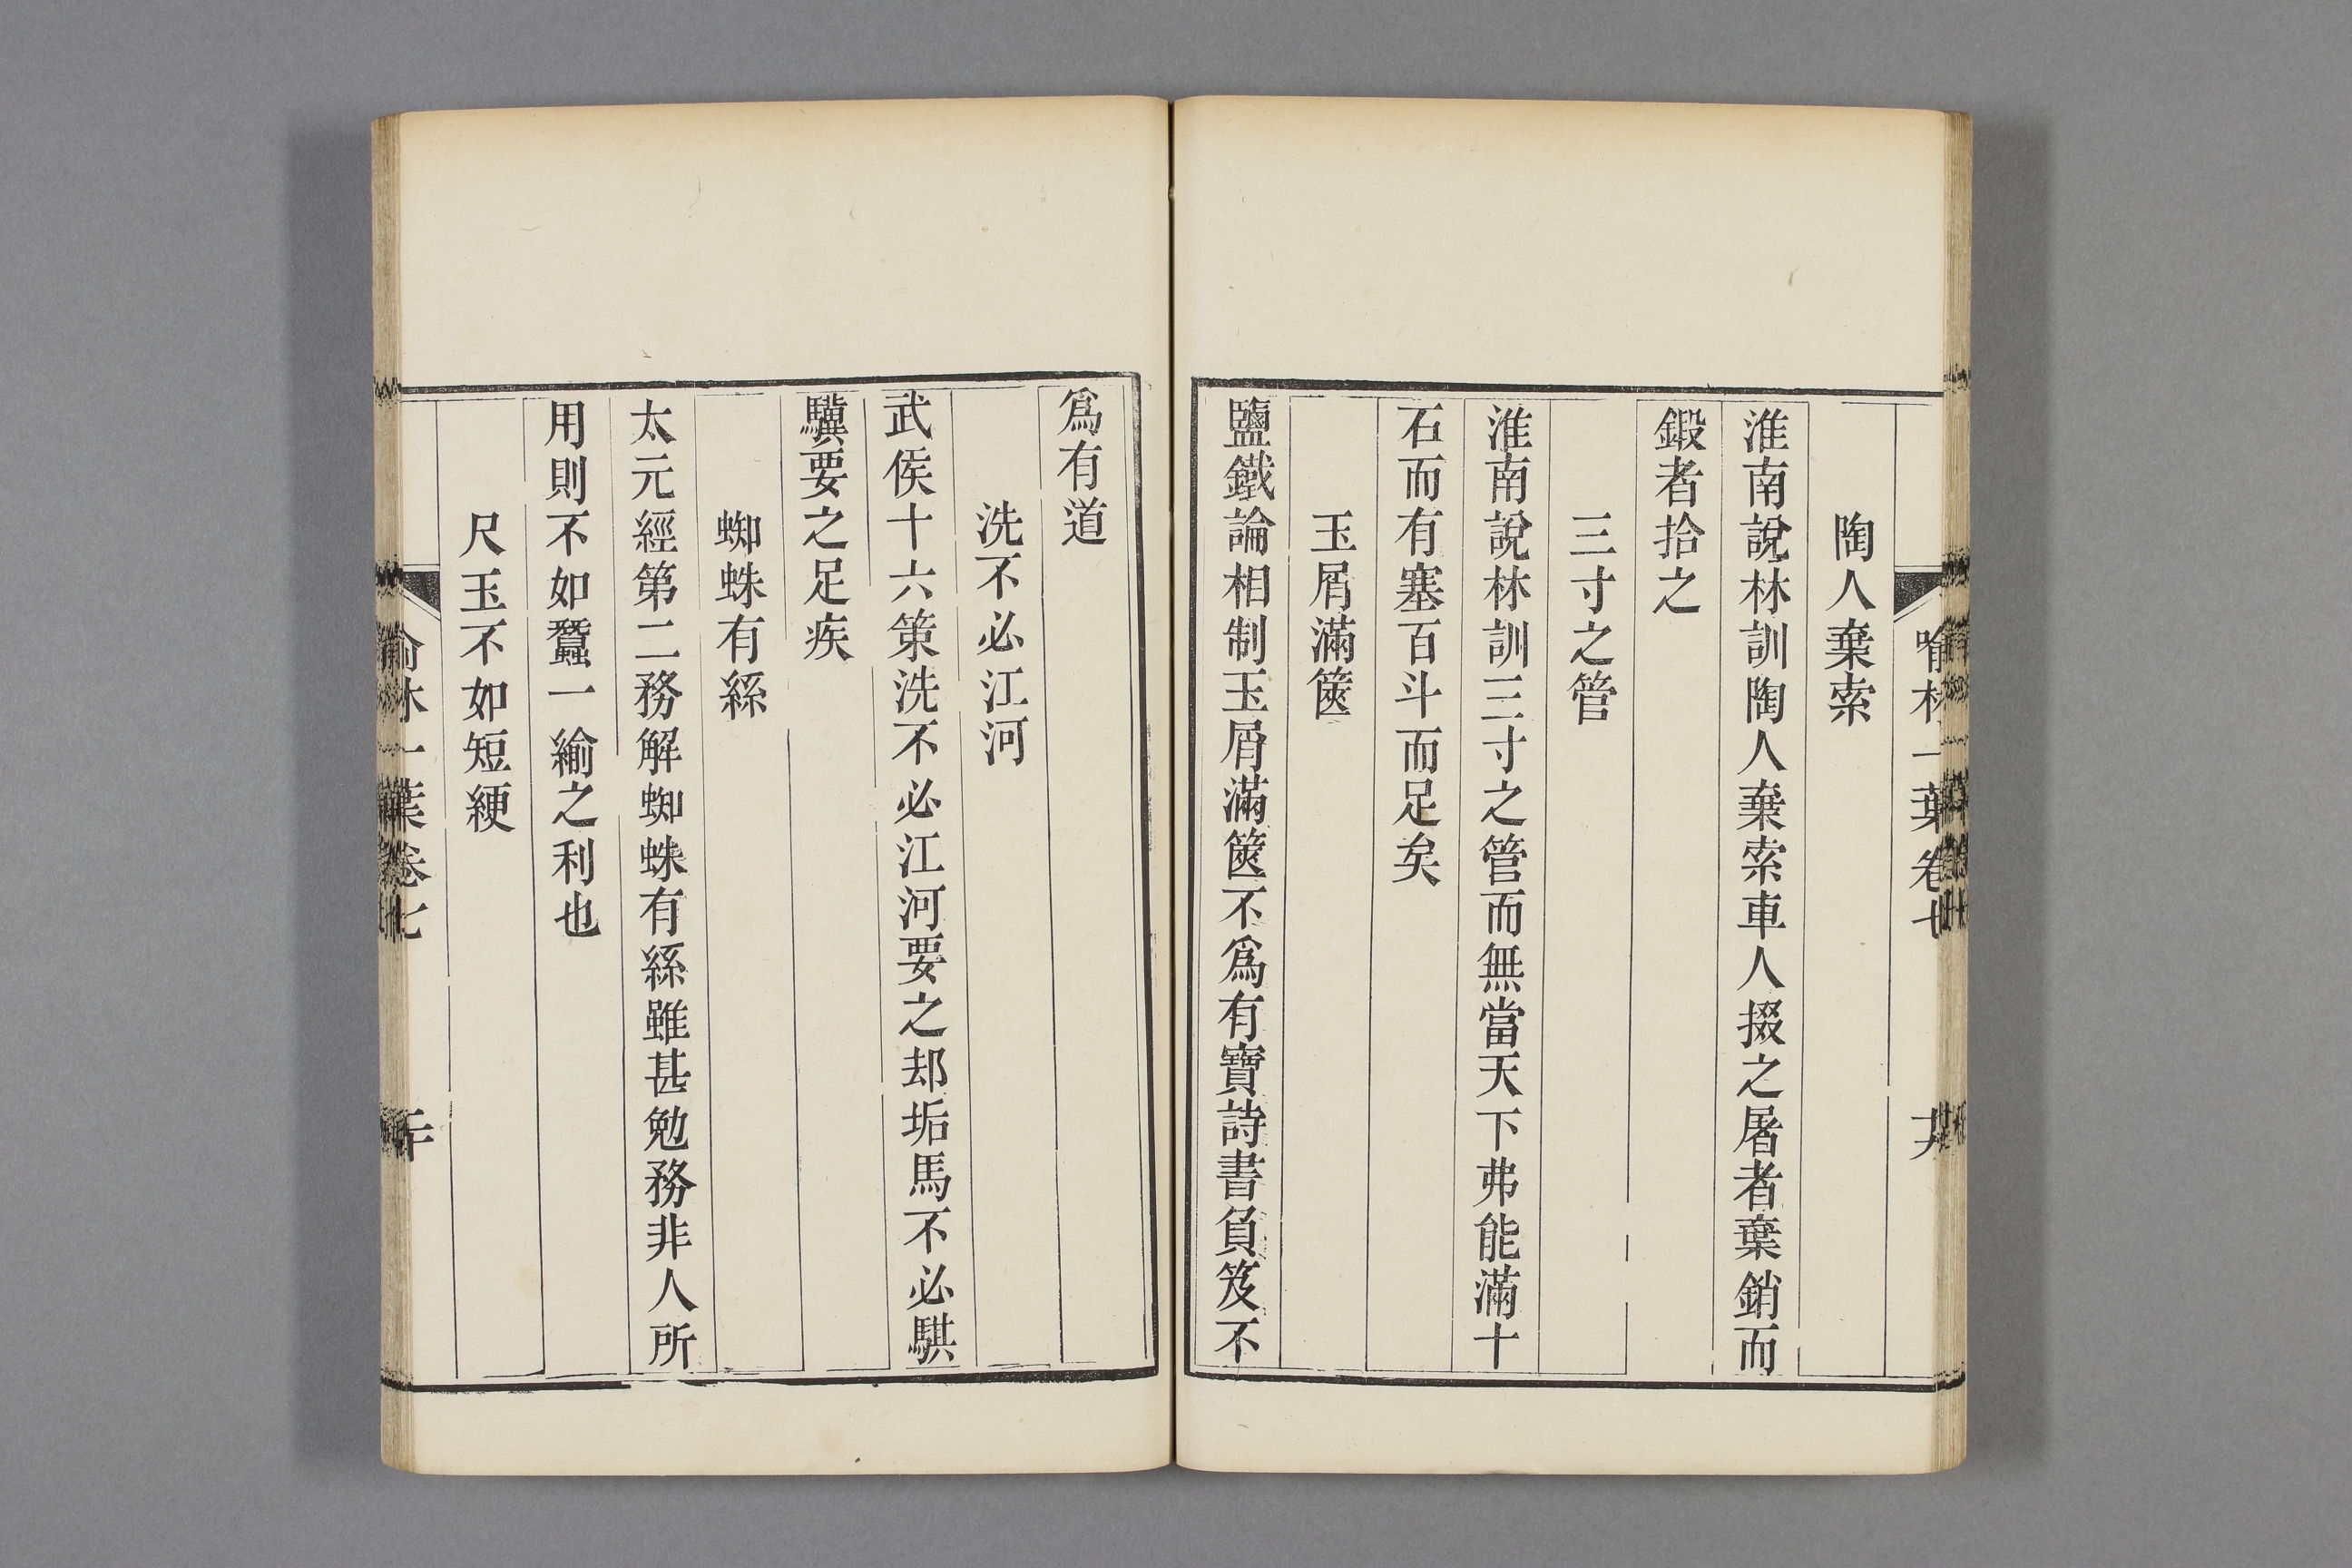 喻林一葉卷七
陶人棄索
淮南說林訓陶人棄索車人掇之屠者棄銷而
鍛者拾之
三寸之管
淮南說林訓三寸之管而無當天下弗能滿十
石而有塞百斗而足矣
玉屑滿篋
鹽鐵論相制玉屑滿篋不爲有寶詩書負笈不
爲有道
洗不必江河
武侯十六策洗不必江河要之却垢馬不必騏
驥要之足疾
蜘蛛有絲
太元經第二務解蜘蛛有絲雖甚勉務非人所
用則不如蠶一緰之利也
尺玉不如短綆
喻林一葉卷七